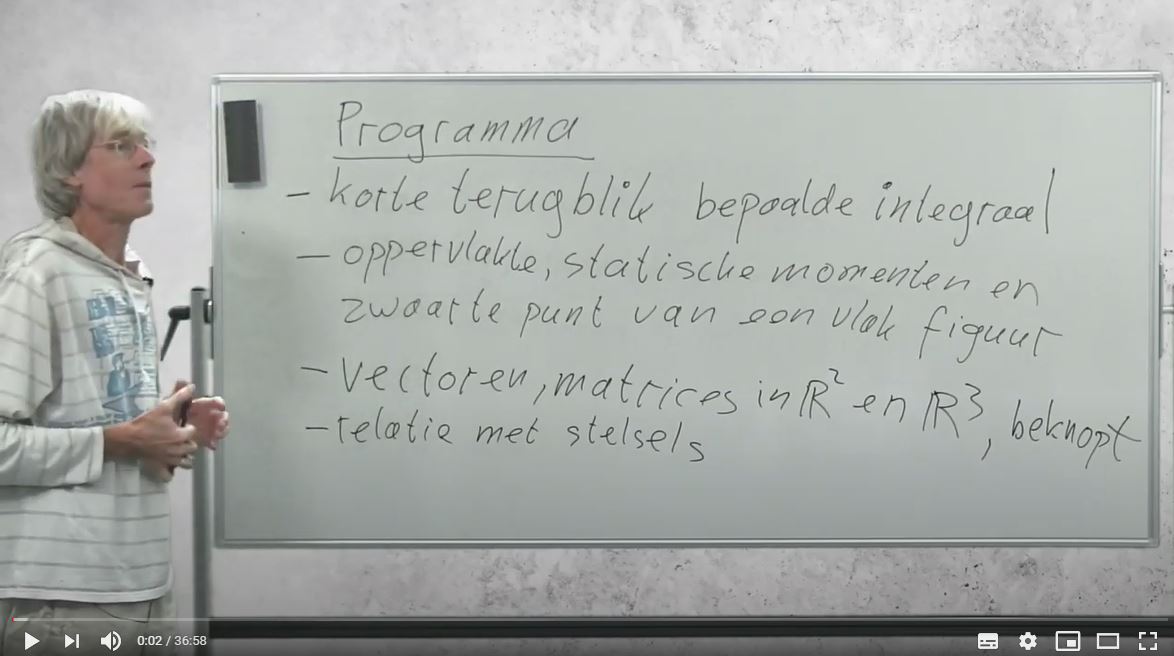 Programma
- korte terugblik bepaalde integraal
- oppervlakte, statische momenten en
zwaarte punt van een vlak figuur
- vectoren, matrices in ℝ² en ℝ³, beknopt
- relatie met stelsels
0:02 / 36:58